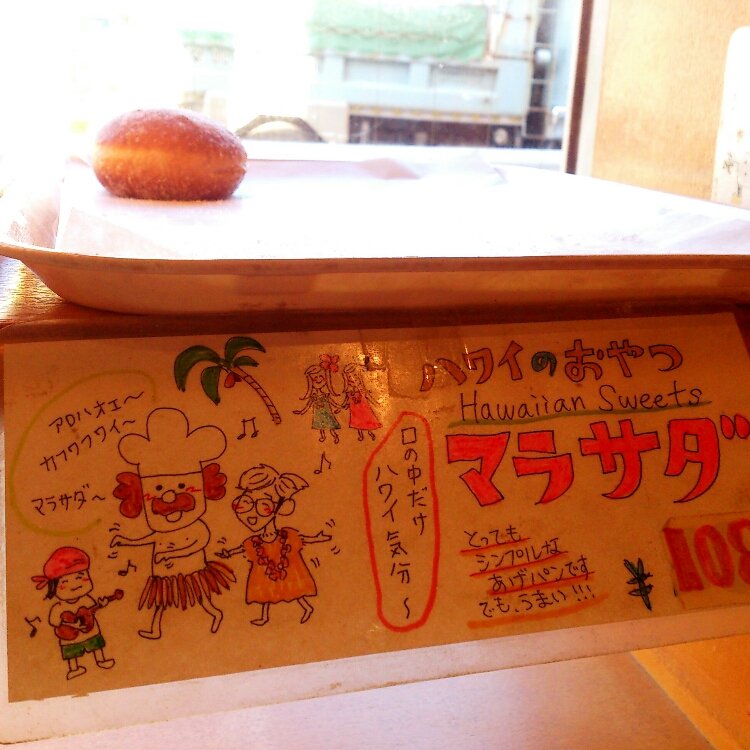 アロハオエ〜
カワウフワイ〜
マラサダ〜
口の中だけ
ハワイ気分〜
ハワイのおやつ
Hawaiian Sweets
マラサダ
とっても
シンプルな
あげパンです
でも、うまい!!!
¥108